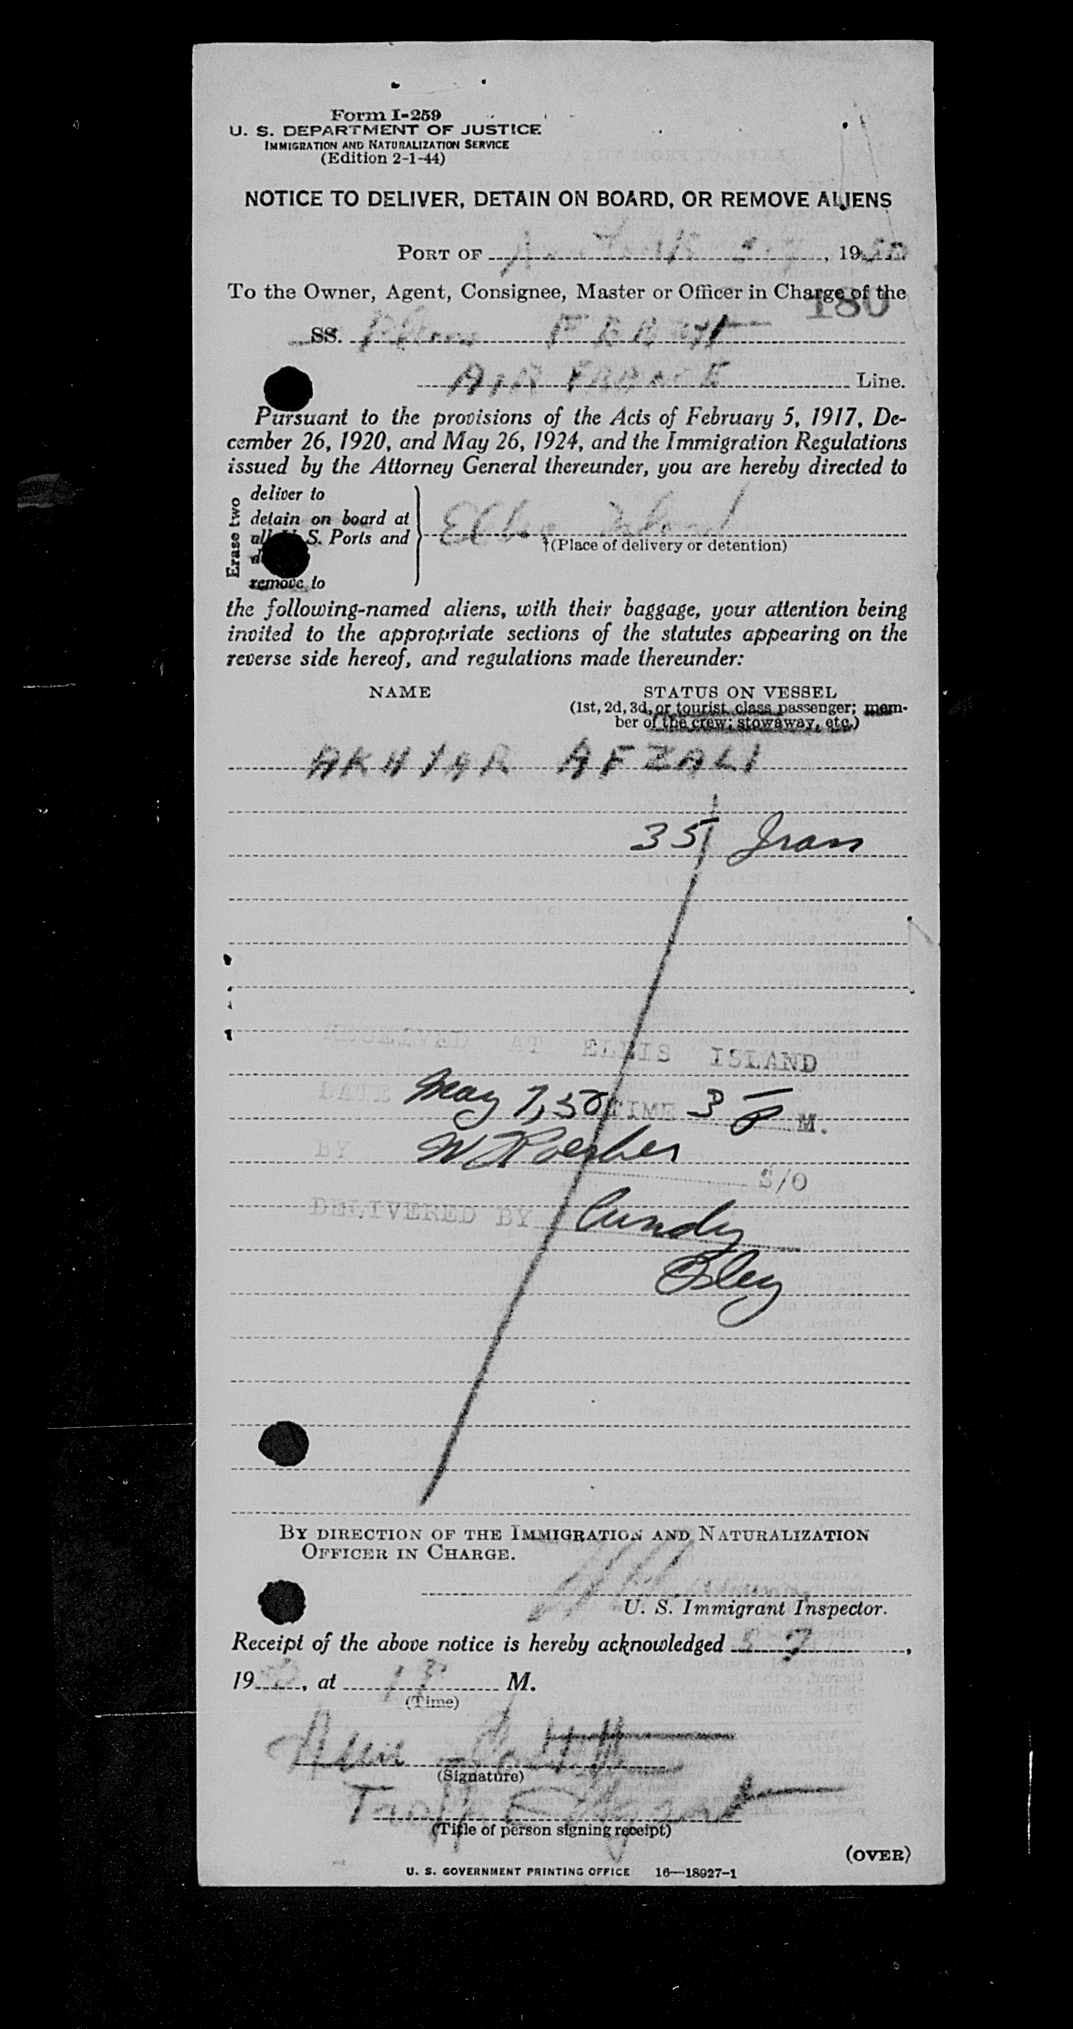 Form I-259
U. S. DEPARTMENT OF JUSTICE
IMMIGRATION AND NATURALIZATION SERVICE
(Edition 2-1-44)
NOTICE TO DELIVER, DETAIN ON BOARD, OR REMOVE ALIENS
PORT OF New York 5-7, 1950
To the Owner, Agent, Consignee, Master or Officer in Charge of the
180
SS. Plane
AIR FRANCE Line.
Pursuant to the provisions of the Acts of February 5, 1917, De-
cember 26, 1920, and May 26, 1924, and the Immigration Regulations
issued by the Attorney General thereunder, you are hereby directed to
Erase two
deliver to
detain on board at
all U. S. Ports and
remove to
Ellis Island
†(Place of delivery or detention)
the following-named aliens, with their baggage, your attention being
invited to the appropriate sections of the statutes appearing on the
reverse side hereof, and regulations made thereunder:
NAME STATUS ON VESSEL
(1st, 2d, 3d, or tourist class passenger; mem-
ber of the crew; stowaway, etc.)
AKHTAR AFZALI
35 Iran
RECEIVED AT ELLIS ISLAND
DATE May 7, 50 TIME 3 P M.
BY S/O
DELIVERED BY Cundy
BY DIRECTION OF THE IMMIGRATION AND NATURALIZATION
OFFICER IN CHARGE.
U. S. Immigrant Inspector.
Receipt of the above notice is hereby acknowledged 5 7,
1950, at 1 P M.
(Time)
(Signature)
(Title of person signing receipt)
(OVER)
U. S. GOVERNMENT PRINTING OFFICE 16—18927-1